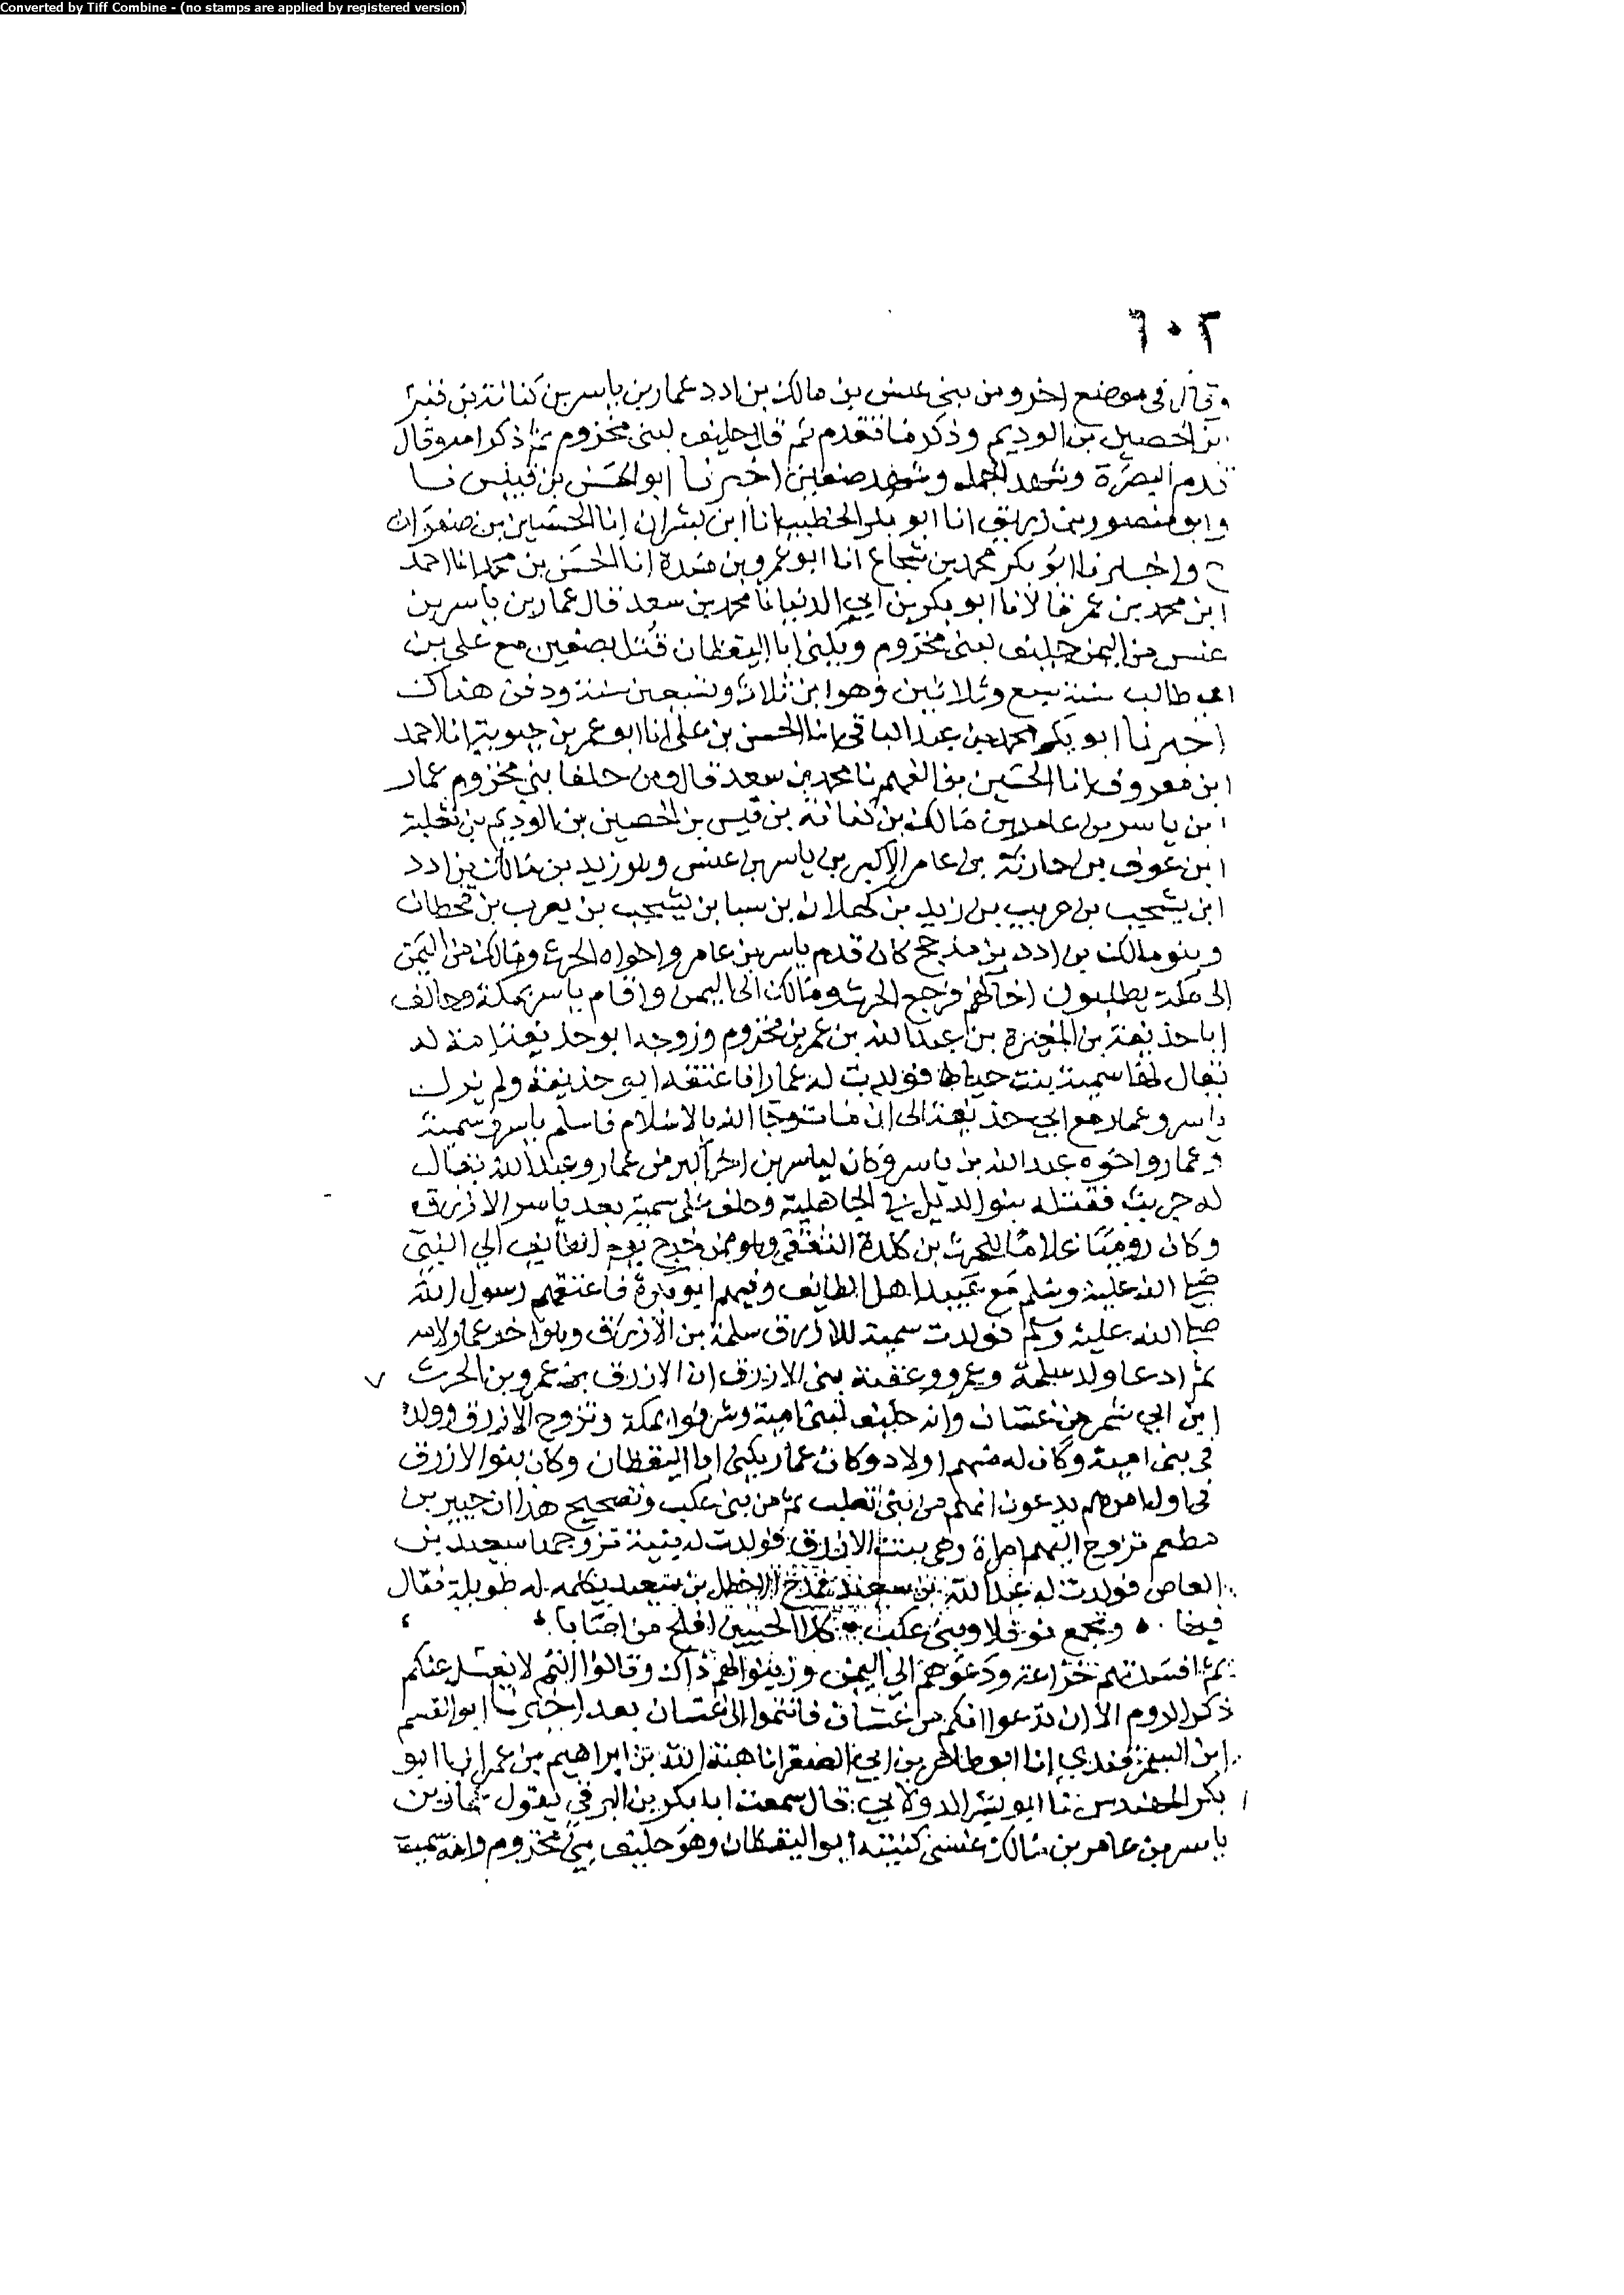 Converted by Tiff Combine - (no stamps are applied by registered version)
٦٠٢
وقال في موضع اخر ومن بني عنس بن مالك بن ادد عمار بن ياسر بن كنانة بن قيس
بن الحصين بن الوديم وذكر ما تقدم ثم قال حليف لبني مخزوم ثم ذكر امه وقال
قدم البصرة وشهد الجمل وشهد صفين اخبرنا ابو الحسن بن قبيس نا
وابو منصور بن زريق انا ابو بكر الخطيب انا ابن بشران انا الحسين بن صفوان
ح واخبرنا ابو بكر محمد بن شجاع انا ابو عمرو بن مندة انا الحسن بن محمد انا احمد
ابن محمد بن عمر قالا نا ابو بكر بن ابي الدنيا نا محمد بن سعد قال عمار بن ياسر بن
عنس من اليمن حليف لبني مخزوم ويكنى ابا اليقظان قتل بصفين مع علي بن
ابي طالب سنة سبع وثلاثين وهو ابن ثلاث وتسعين سنة ودفن هناك
اخبرنا ابو بكر محمد بن عبد الباقي انا الحسن بن علي انا ابو عمر بن حيوية انا احمد
ابن معروف انا الحسين بن الفهم نا محمد بن سعد قال ومن حلفا بني مخزوم عمار
ابن ياسر بن عامر بن مالك بن كنانة بن قيس بن الحصين بن الوديم بن ثعلبة
ابن عوف بن حارثة بن عامر الاكبر بن يام بن عنس وهو زيد بن مالك بن ادد
ابن يشجب بن عريب بن زيد بن كهلان بن سبا بن يشجب بن يعرب بن قحطان
وبنو مالك بن ادد بن مذحج كان قدم ياسر بن عامر واخواه الحرث ومالك من اليمن
الى مكة يطلبون اخا لهم فرجع الحرث ومالك الى اليمن واقام ياسر بمكة وحالف
ابا حذيفة بن المغيرة بن عبد الله بن عمر بن مخزوم وزوجه ابو حذيفة امة له
يقال لها سمية بنت خياط فولدت له عمارا فاعتقه ابو حذيفة ولم يزل
ياسر وعمار مع ابي حذيفة الى ان مات وجا الله بالاسلام فاسلم ياسر وسمية
وعمار واخوه عبد الله بن ياسر وكان لياسر بن اخر اكبر من عمار وعبد الله يقال
له حريث فقتله بنو الديل في الجاهلية وخلف على سمية بعد ياسر الازرق
وكان روميا غلاما للحرث بن كلدة الثقفي وهو ممن خرج يوم الطايف الى النبي
صلى الله عليه وسلم مع عبيد اهل الطايف وفيهم ابو بكرة فاعتقهم رسول الله
صلى الله عليه وسلم فولدت سمية للازرق سلمة بن الازرق وهو اخو عمار لامه
ثم ادعا ولد سلمة وعمرو وعقبة بني الازرق ان الازرق بن عمرو بن الحرث
ابن ابي شمر من غسان وانه حليف لبني امية وشرفوا بمكة وتزوج الازرق وولده
في بني امية وكان له منهم اولاد وكان عمار يكنى ابا اليقظان وكان بنو الازرق
في اول امرهم يدعون انهم من بني تغلب ثم من بني عكب وتصحيح هذا ان جبير بن
مطعم تزوج اليهم امراة وهي بنت الازرق فولدت له بنية تزوجها سعيد بن
العاص فولدت له عبد الله بن سعيد فمدح الاخطل بن سعيد بكلمة له طويلة فقال
فيها وتجمع نوفلا وبني عكب كلا الحيين افلح من اصابا
ثم افسدتهم خزاعة ودعوهم الى اليمن وزينوا لهم ذاك وقالوا انتم لا يغسل عنكم
ذكر الروم الا ان تدعوا انكم من غسان فانتموا الى غسان بعد اخبرنا ابو القسم
ابن السمرقندي انا ابو طاهر بن ابي الصقر انا هبة الله بن ابراهيم بن عمر انا ابو
بكر المهندس نا ابو بشر الدولابي قال سمعت ابا بكر بن البرقي يقول عمار بن
ياسر بن عامر بن مالك عنسي كنيته ابو اليقظان وهو حليف بني مخزوم وامه سمية